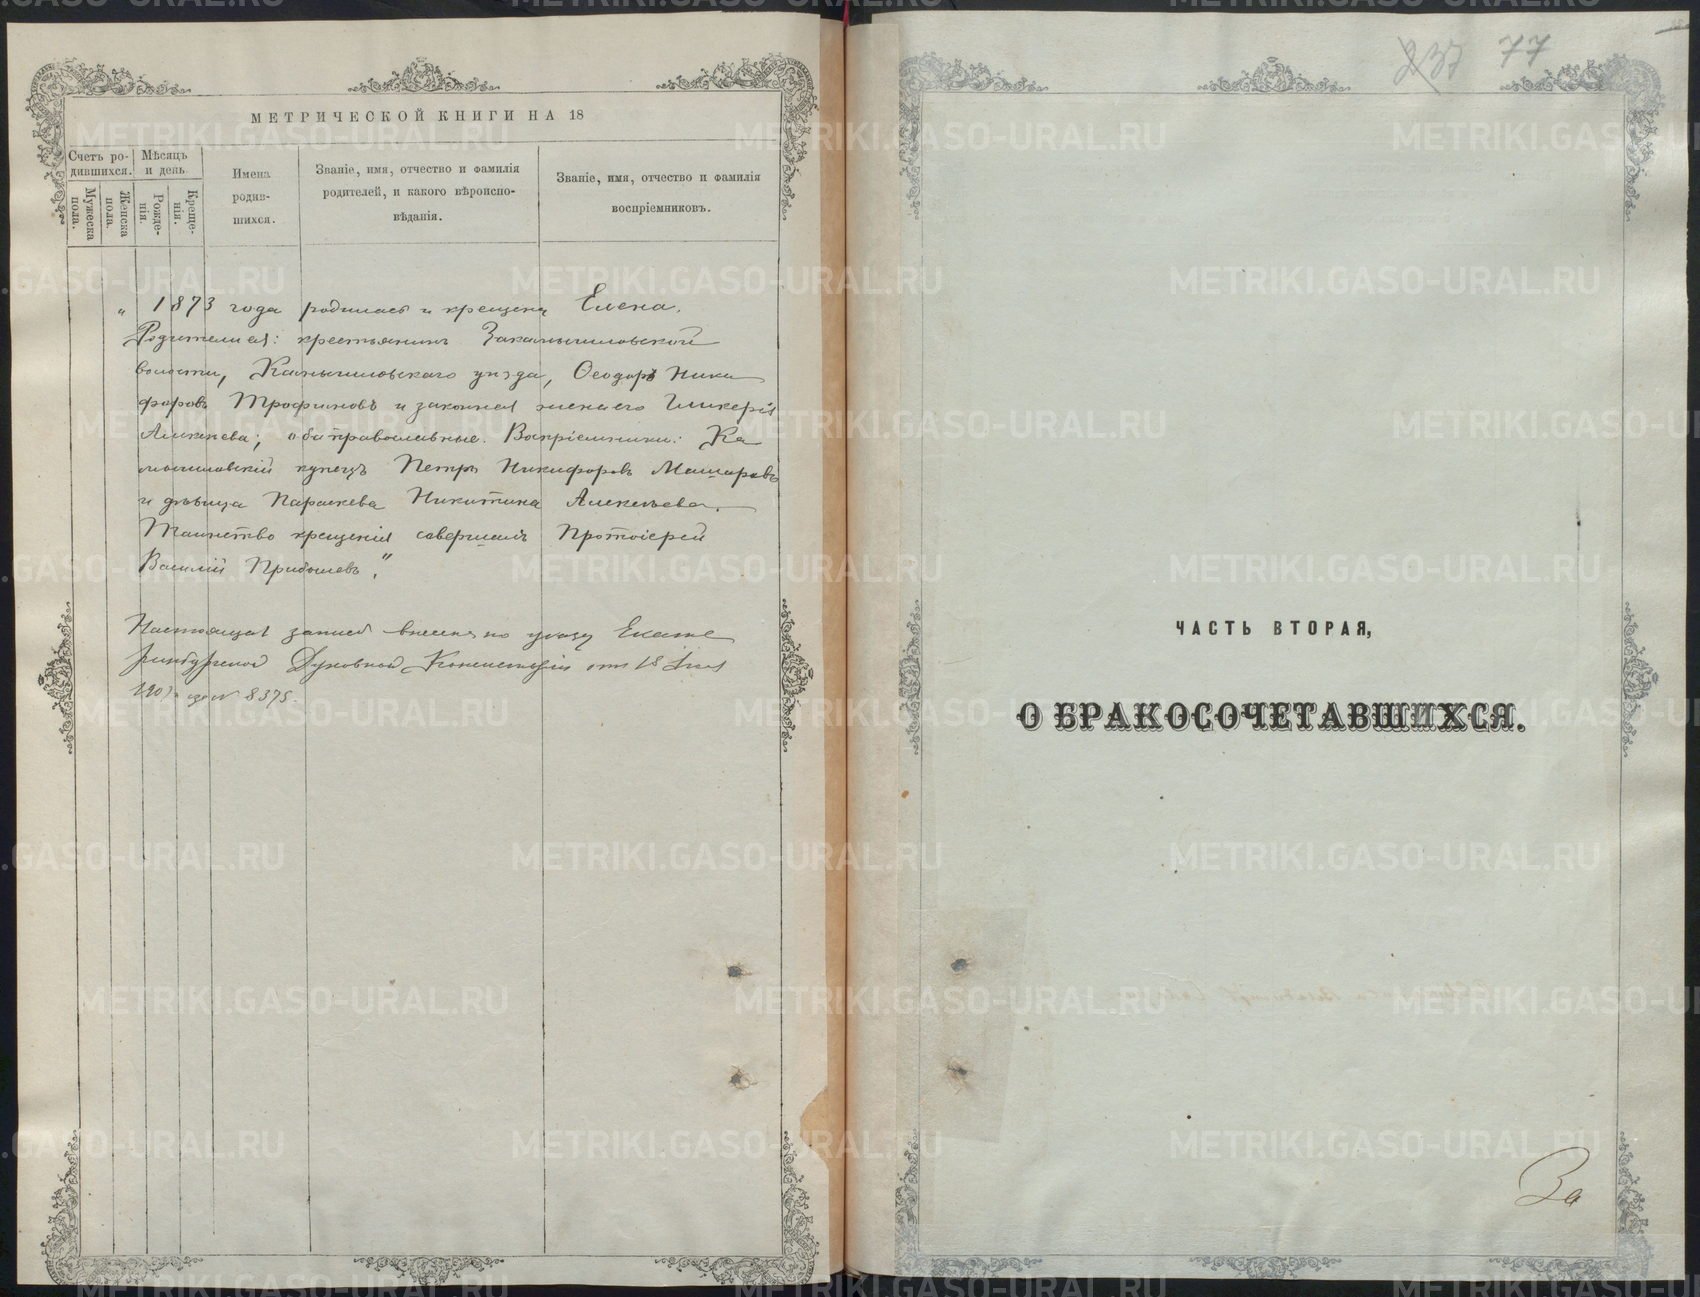 МЕТРИЧЕСКОЙ КНИГИ НА 18
Счетъ ро-
дившихся.
Мужеска
пола.
Женска
пола.
Мѣсяцъ
и день
Рожде-
нія.
Креще-
нія.
Имена
родив-
шихся.
Званіе, имя, отчество и фамилія
родителей, и какого вѣроиспо-
вѣданія.
Званіе, имя, отчество и фамилія
воспріемниковъ.
„ 1873 года родилась и крещена Елена.
Родители ея: крестьянинъ Закамышловской
волости, Камышловскаго уѣзда, Ѳеодоръ Ники
форовъ Трофимовъ и законная жена его Гликерія
Алексѣева, оба православные. Воспріемники: Ка
мышловскій купецъ Петръ Никифоровъ Машаровъ
и дѣвица Параскева Никитина Алексѣева.
Таинство крещенія совершалъ Протоіерей
Василій Прибылевъ."
Настоящая запись внесена по указу Екате
ринбургской Духовной Консисторіи отъ 18
за № 8375.
237 77
ЧАСТЬ ВТОРАЯ,
О БРАКОСОЧЕТАВШИХСЯ.
За
METRIKI.GASO-URAL.RU